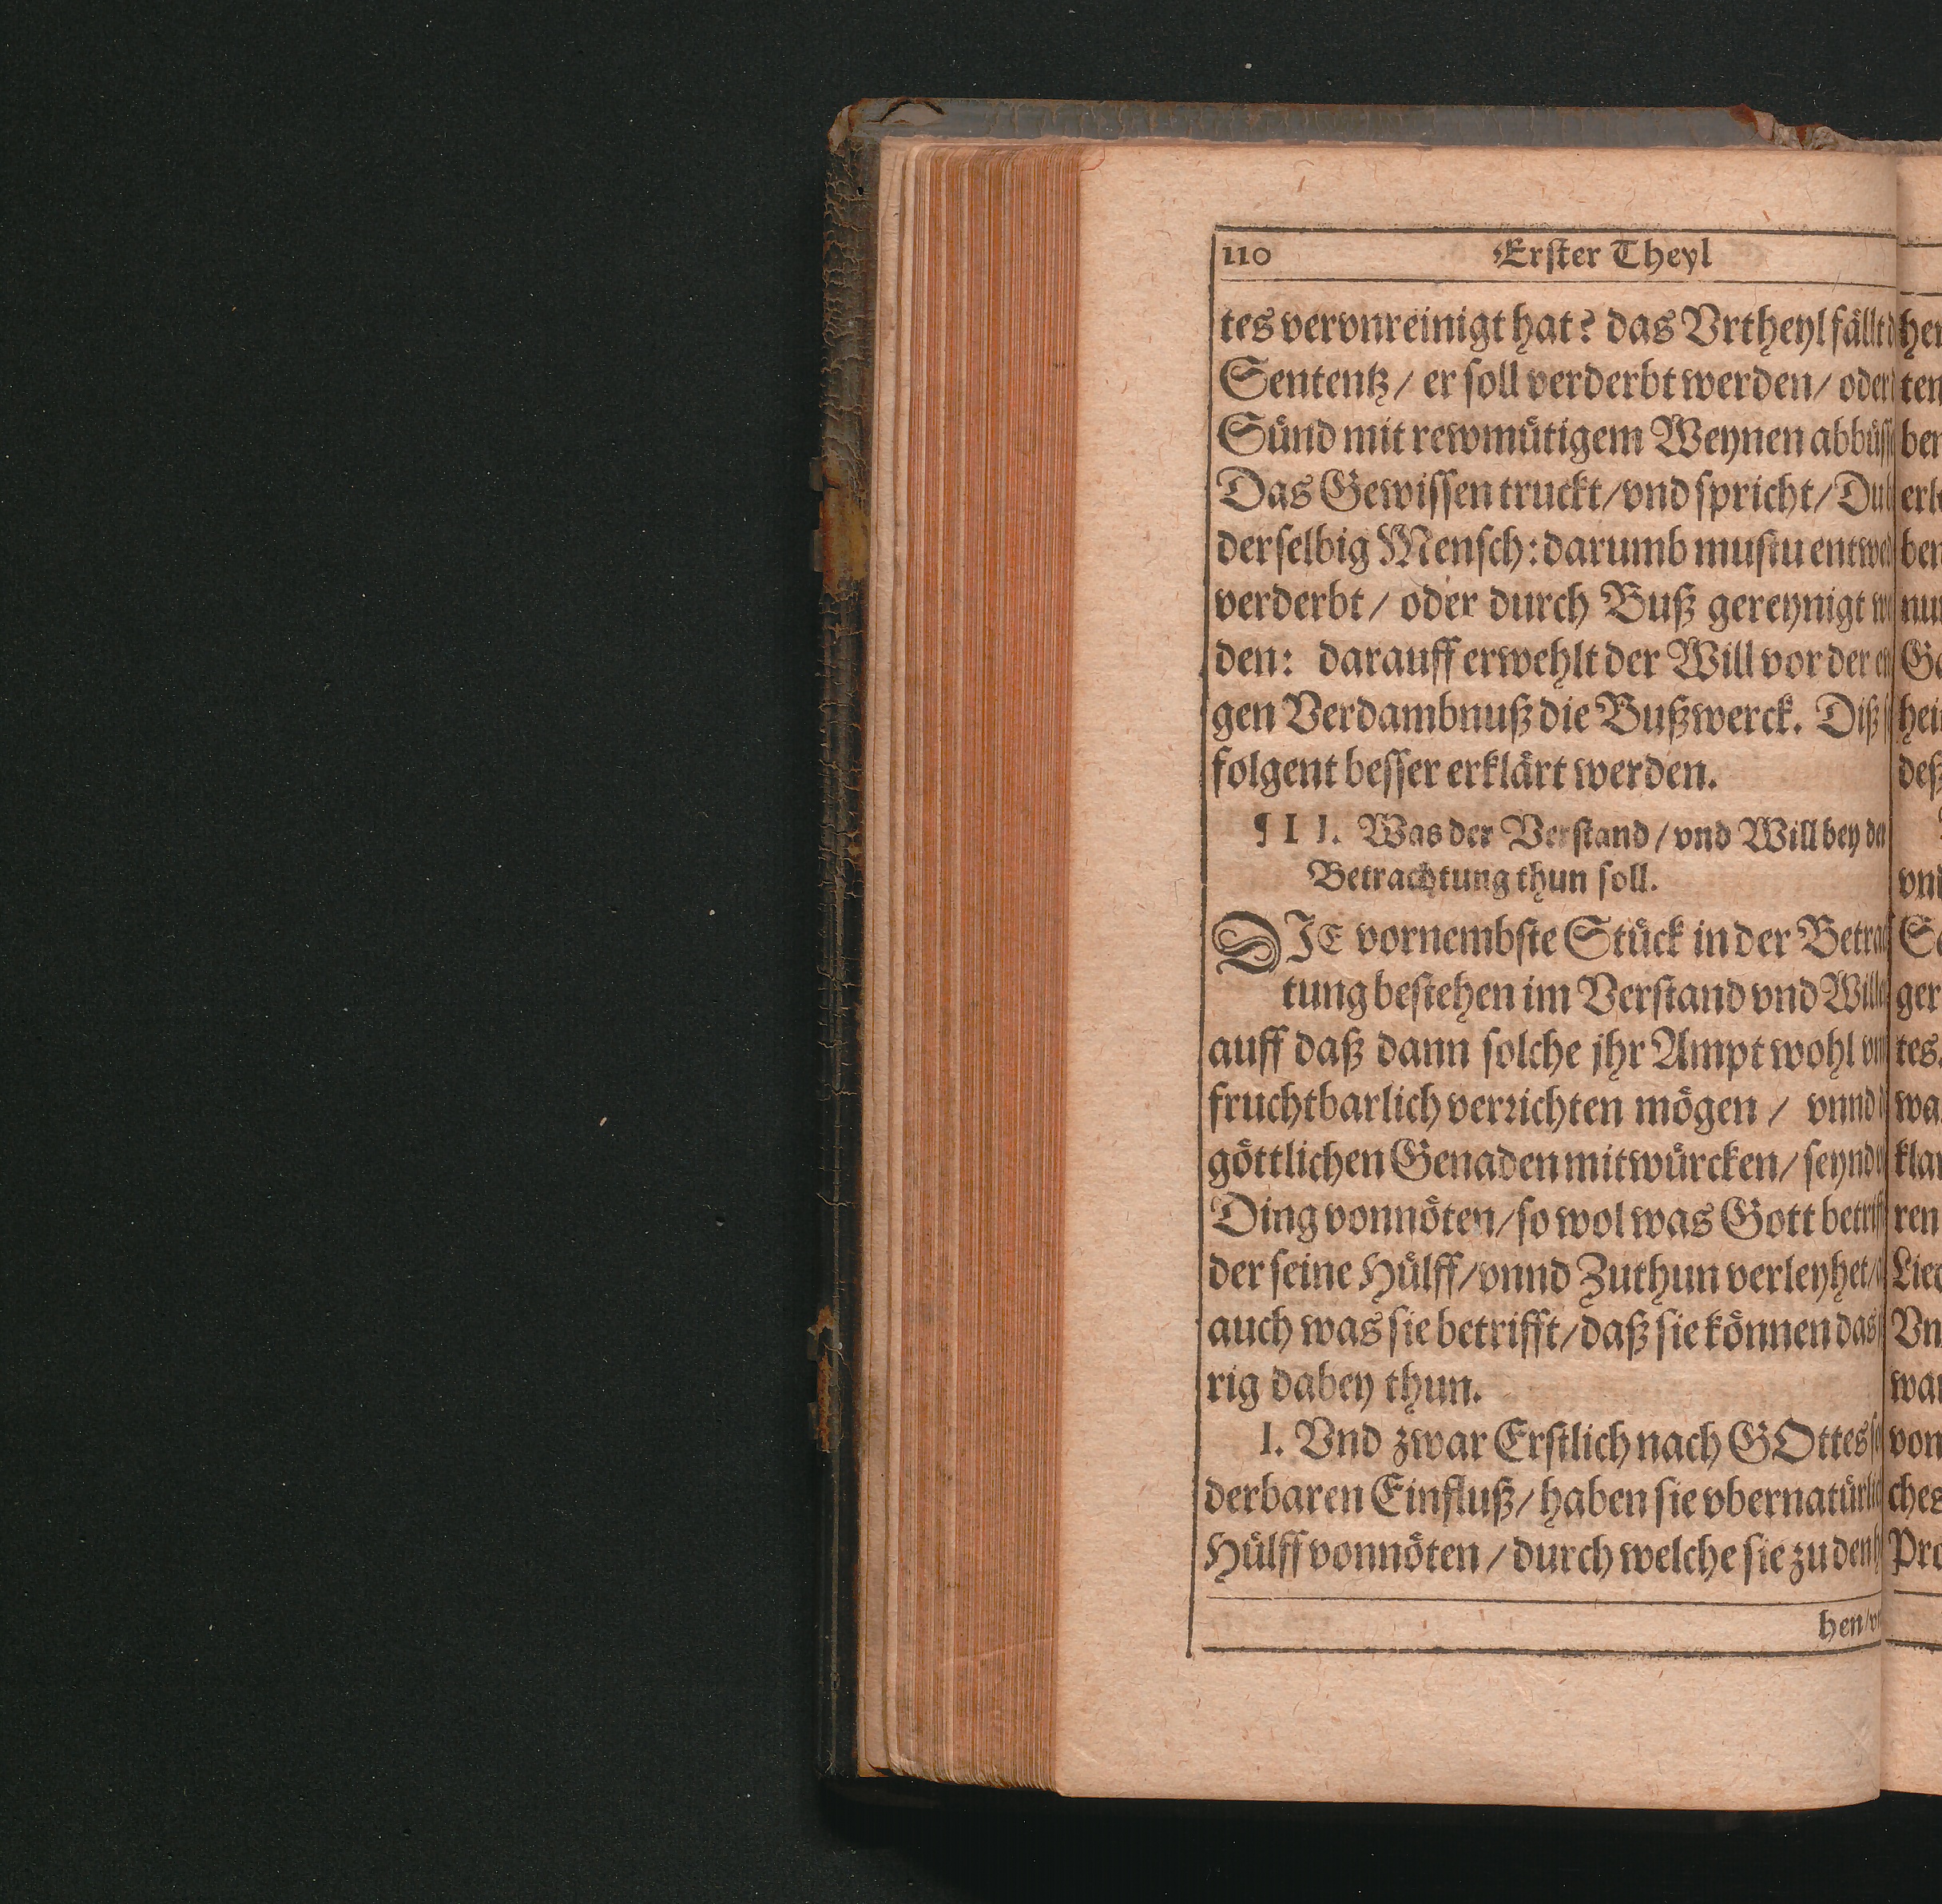 110 Erster Theyl
tes vervnreinigt hat? das Vrtheyl fällt
Sententz/ er soll verderbt werden/ oder
Sünd mit rewmütigem Weynen
Das Gewissen truckt/vnd spricht/ Du
derselbig Mensch: darumb mustu
verderbt/ oder durch Buß gereynigt
den: darauff erwehlt der Will vor der
gen Verdambnuß die Bußwerck. Diß
folgent besser erklärt werden.
¶ I I. Was der Verstand/vnd Will bey
Betrachtung thun soll.
DIE vornembste Stück in der
tung bestehen im Verstand vnd
auff daß dann solche jhr Ampt wohl
fruchtbarlich verrichten mögen / vnnd
göttlichen Genaden mitwürcken/ seynd
Ding vonnöten/so wol was Gott
der seine Hülff/vnnd Zuthun verleyhet/
auch was sie betrifft/daß sie können das
rig dabey thun.
I. Vnd zwar Erstlich nach GOttes
derbaren Einfluß/ haben sie
Hülff vonnöten / durch welche sie zu den
hen/